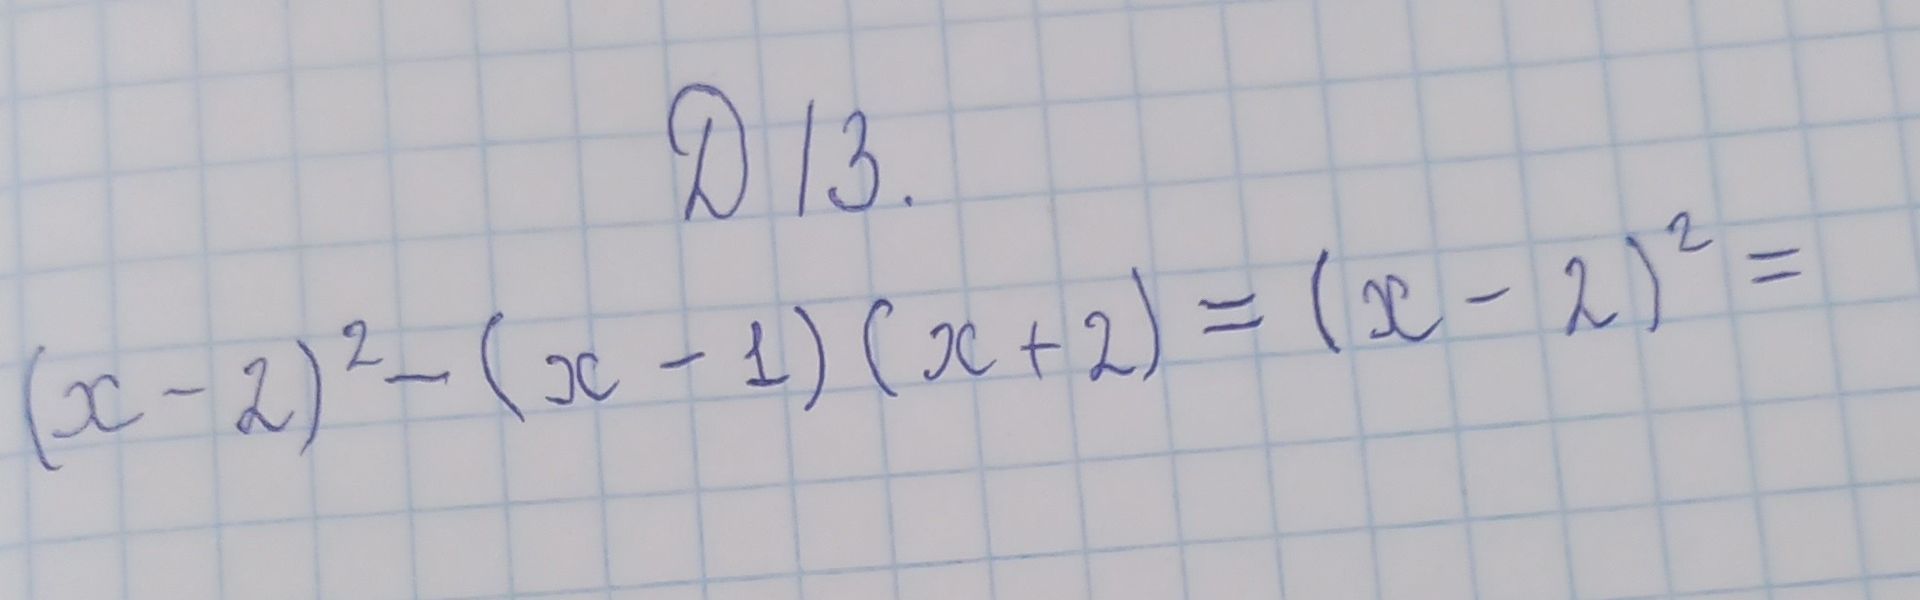 D/З.
(x-2)²-(x-1)(x+2)=(x-2)²=